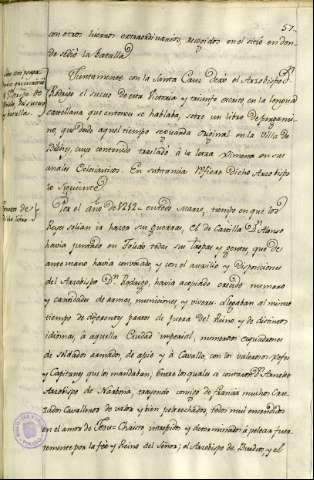 57.
con otros huesos extraordinarios, recogidos en el sitio en don-
de se dió la Batalla.
Juntamente con la Santa Cruz dexó el Arzobispo Dn
Rodrigo el suceso de esta Victoria y triunfo escrito en la lengua
castellana que entonces se hablaba, sobre un libro de pergami-
no, que desde aquel tiempo se guarda original en la Villa de
Bilches, cuyo contenido trasladó a la letra Ximena en sus
anales Eclesiasticos. En substancia refiere dicho Arzobispo
lo siguiente.
Por el año de 1212 en todo Marzo, tiempo en que los
Reyes solian ya hacer sus guerras, el de Castilla Dn Alonso
havia juntado en Toledo todas sus tropas y gentes, que de
antemano havia convocado, y con el auxilio y disposiciones
del Arzobispo Dn Rodrigo, havia acopiado crecido numero
y cantidades de armas, municiones y viveres: llegaban al mismo
tiempo de diferentes partes de fuera del Reino y de distintos
idiomas, à aquella Ciudad imperial, numerosos esquadrones
de Soldados armados, de apie y à Cavallo, con los valerosos Xefes
y Capitanes que los mandaban, entre los quales se contaron Dn Arnaldo
Arzobispo de Narbona, trayendo consigo de Francia muchos
Cavalleros de valor y bien pertrechados, todos mui encendidos
en el amor de Jesu-Christo, intrepidos y determinados à pelear fuer-
temente por la fee y Reino del Señor; el Arzobispo de Burdeos, y el